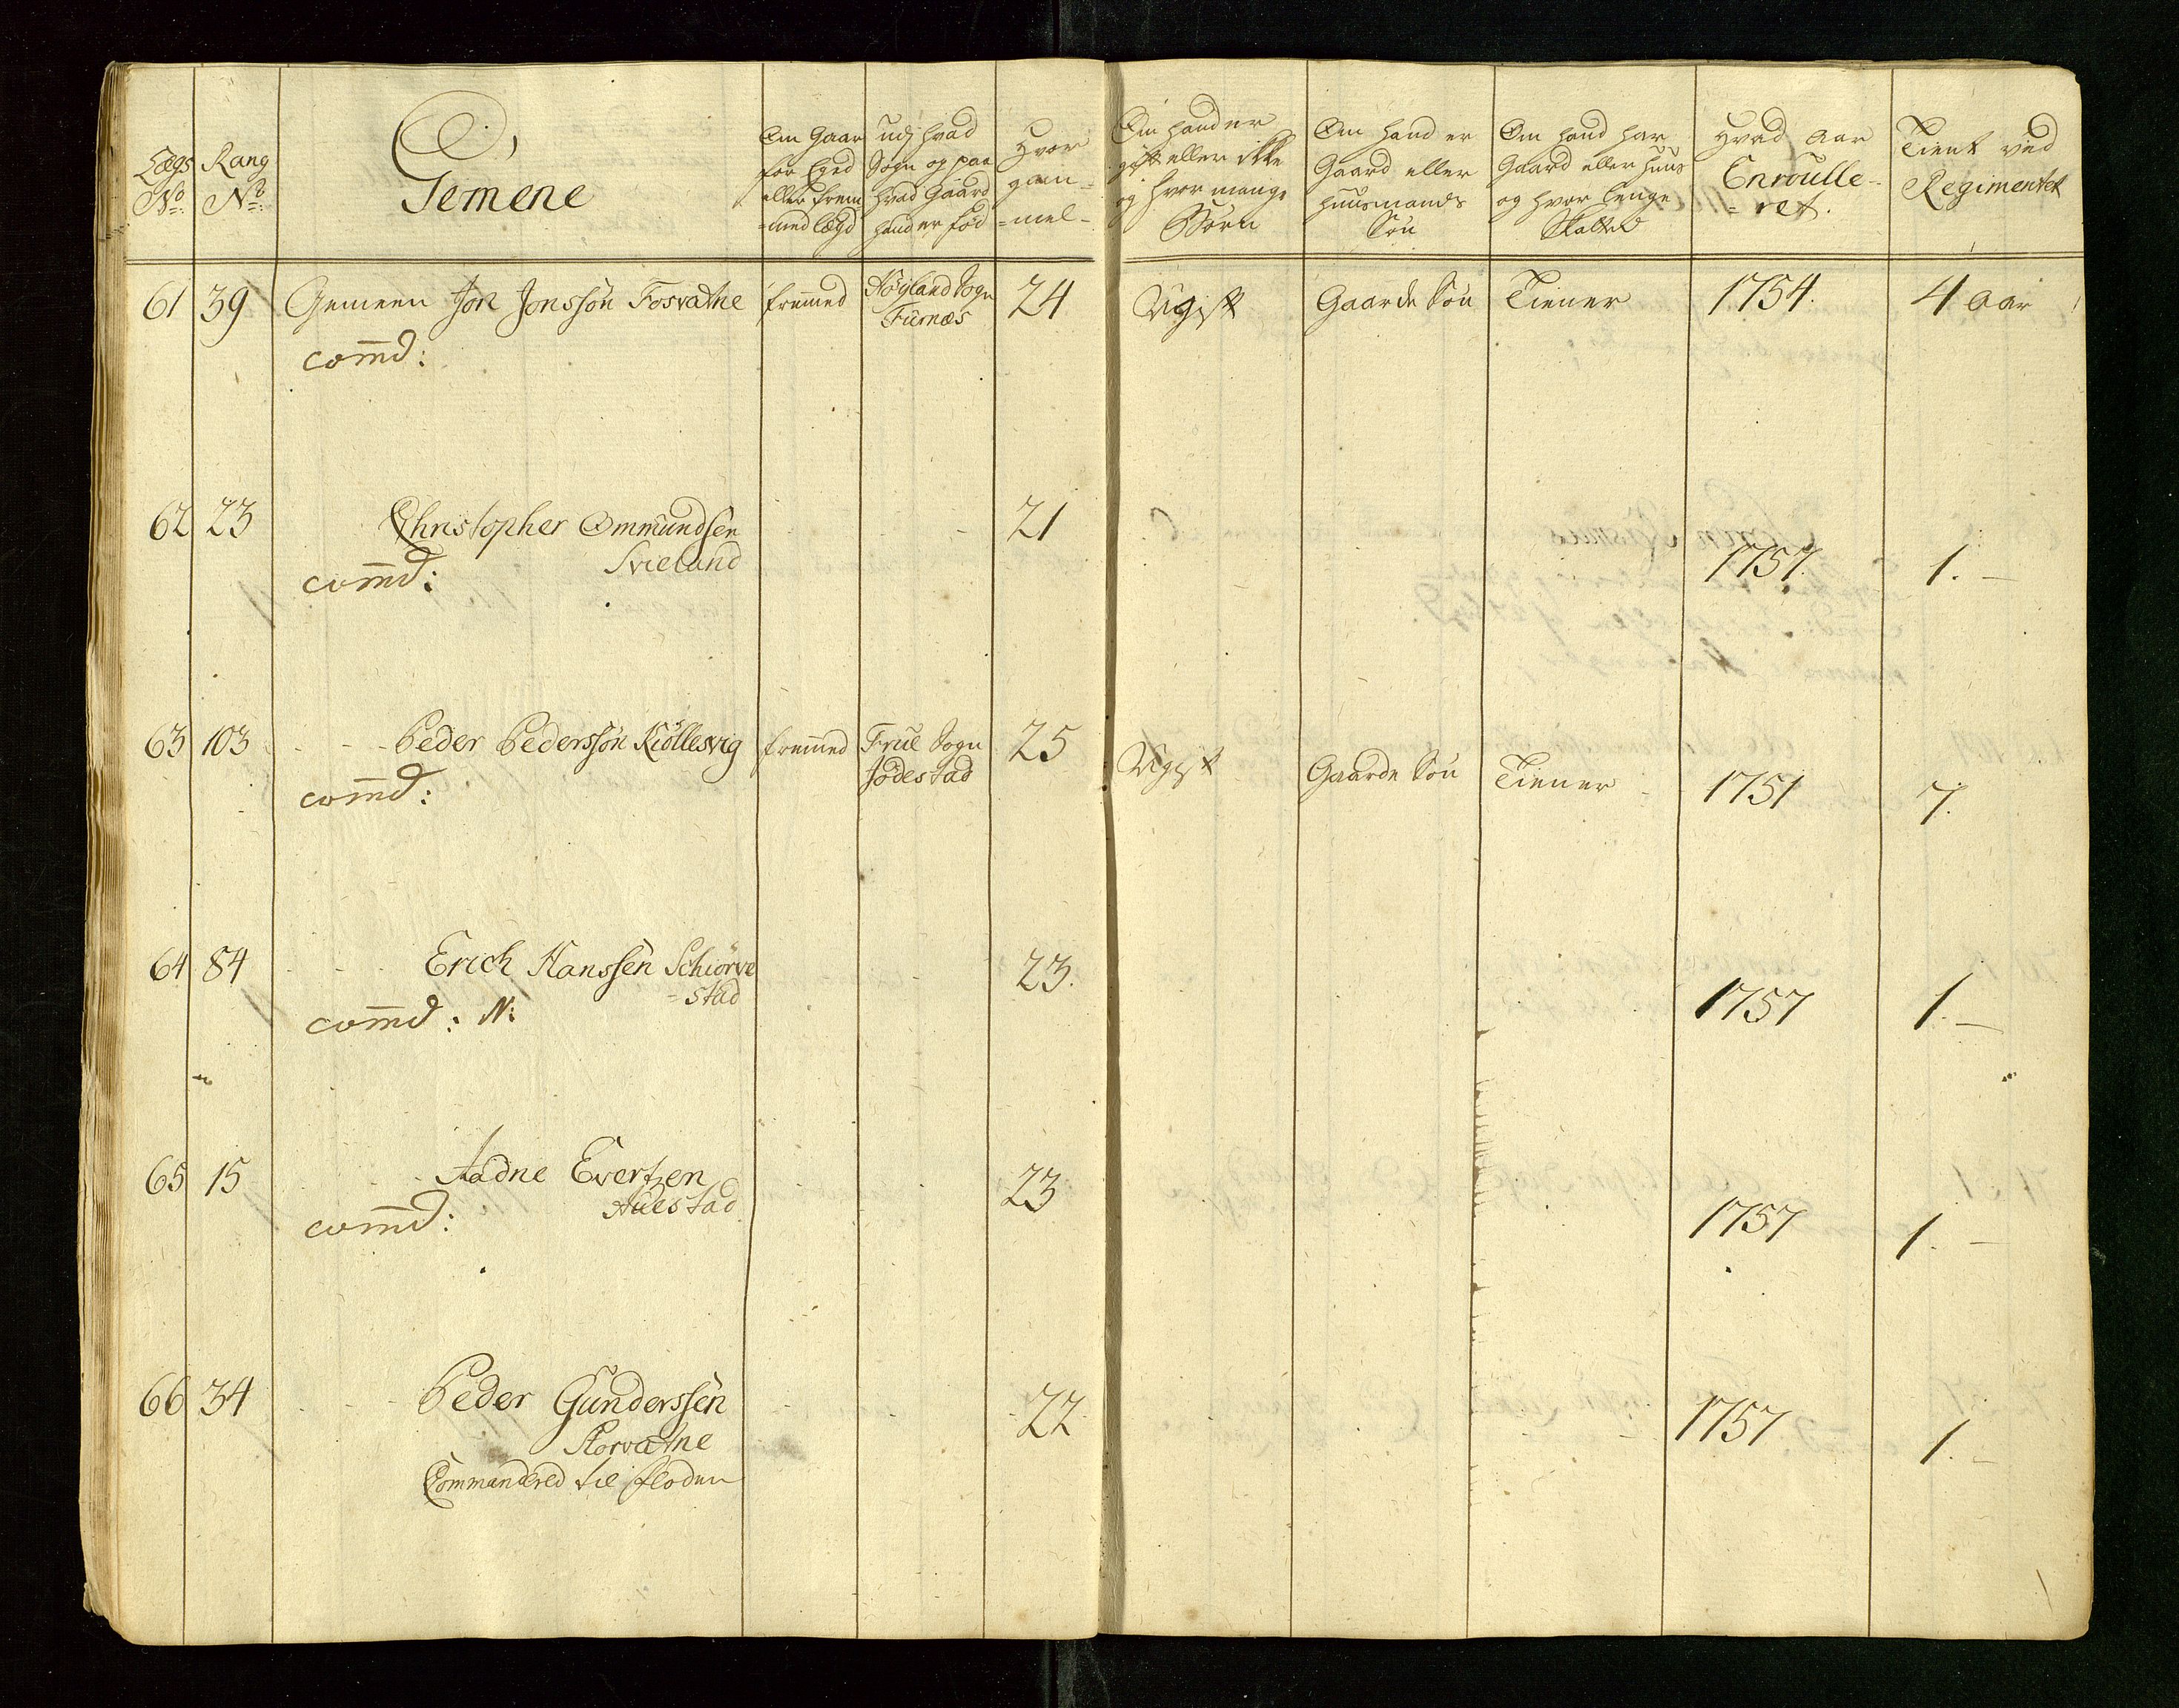 Lægs No: Rang No: Gemene
Om Gaar for Eged eller frem=med lægd
udj hvad Sogn og paa hvad Gaard hand er fød
Hvor gam=mel
Om hand er gift eller ikke og hvor mange Børn
Om hand er Gaard eller huusmands Søn
Om hand har Gaard eller huus og hvor lenge
Hvad Aar Enroulle=ret.
Tient ved Regimentet
61 39 Gemeen Jon Jonssøn Fosvatne fremmed Høyland Sogn 24 Ugift Gaarde Søn Tiener 1754. 4 Aar
comd:
62 23 Christopher Ommundsen 21 1757. 1.
comd: Svieland
63 103 Peder Pederssøn Kiøllesvig fremmed Frue Sogn 25 Ugift Gaarde Søn Tiener 1751 7.
comd: Jødestad
64 84 Erich Hanssen Schiørve 23. 1757 1.
comd: N: =stad
65 15 Aadne Evertzen 23 1757 1.
comd: Auestad
66 34 Peder Gunderssen 22 1757 1.
Storvatne
Commandered til floden